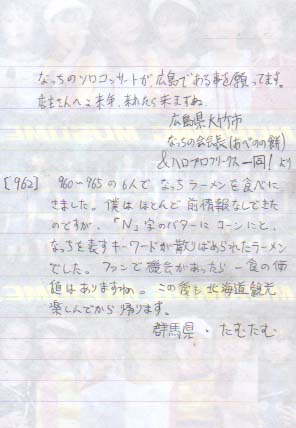 なっちのソロコンサートが広島である事を願ってます。
店主さんへ 来年、来れたら来ますね
広島県大竹市
なっちの会会長(あべのの餅)
&ハロプロフリークス一同! より
[962] 960〜965の6人でなっちラーメンを食べに
きました。僕はほとんど前情報なしできた
のですが、「N」字のバターにコーンにと、
なっちを表すキーワードが散りばめられたラーメン
でした。ファンで機会があったら一食の価
値はありますね。この後も北海道観光
楽しんでから帰ります。
群馬県・たむたむ